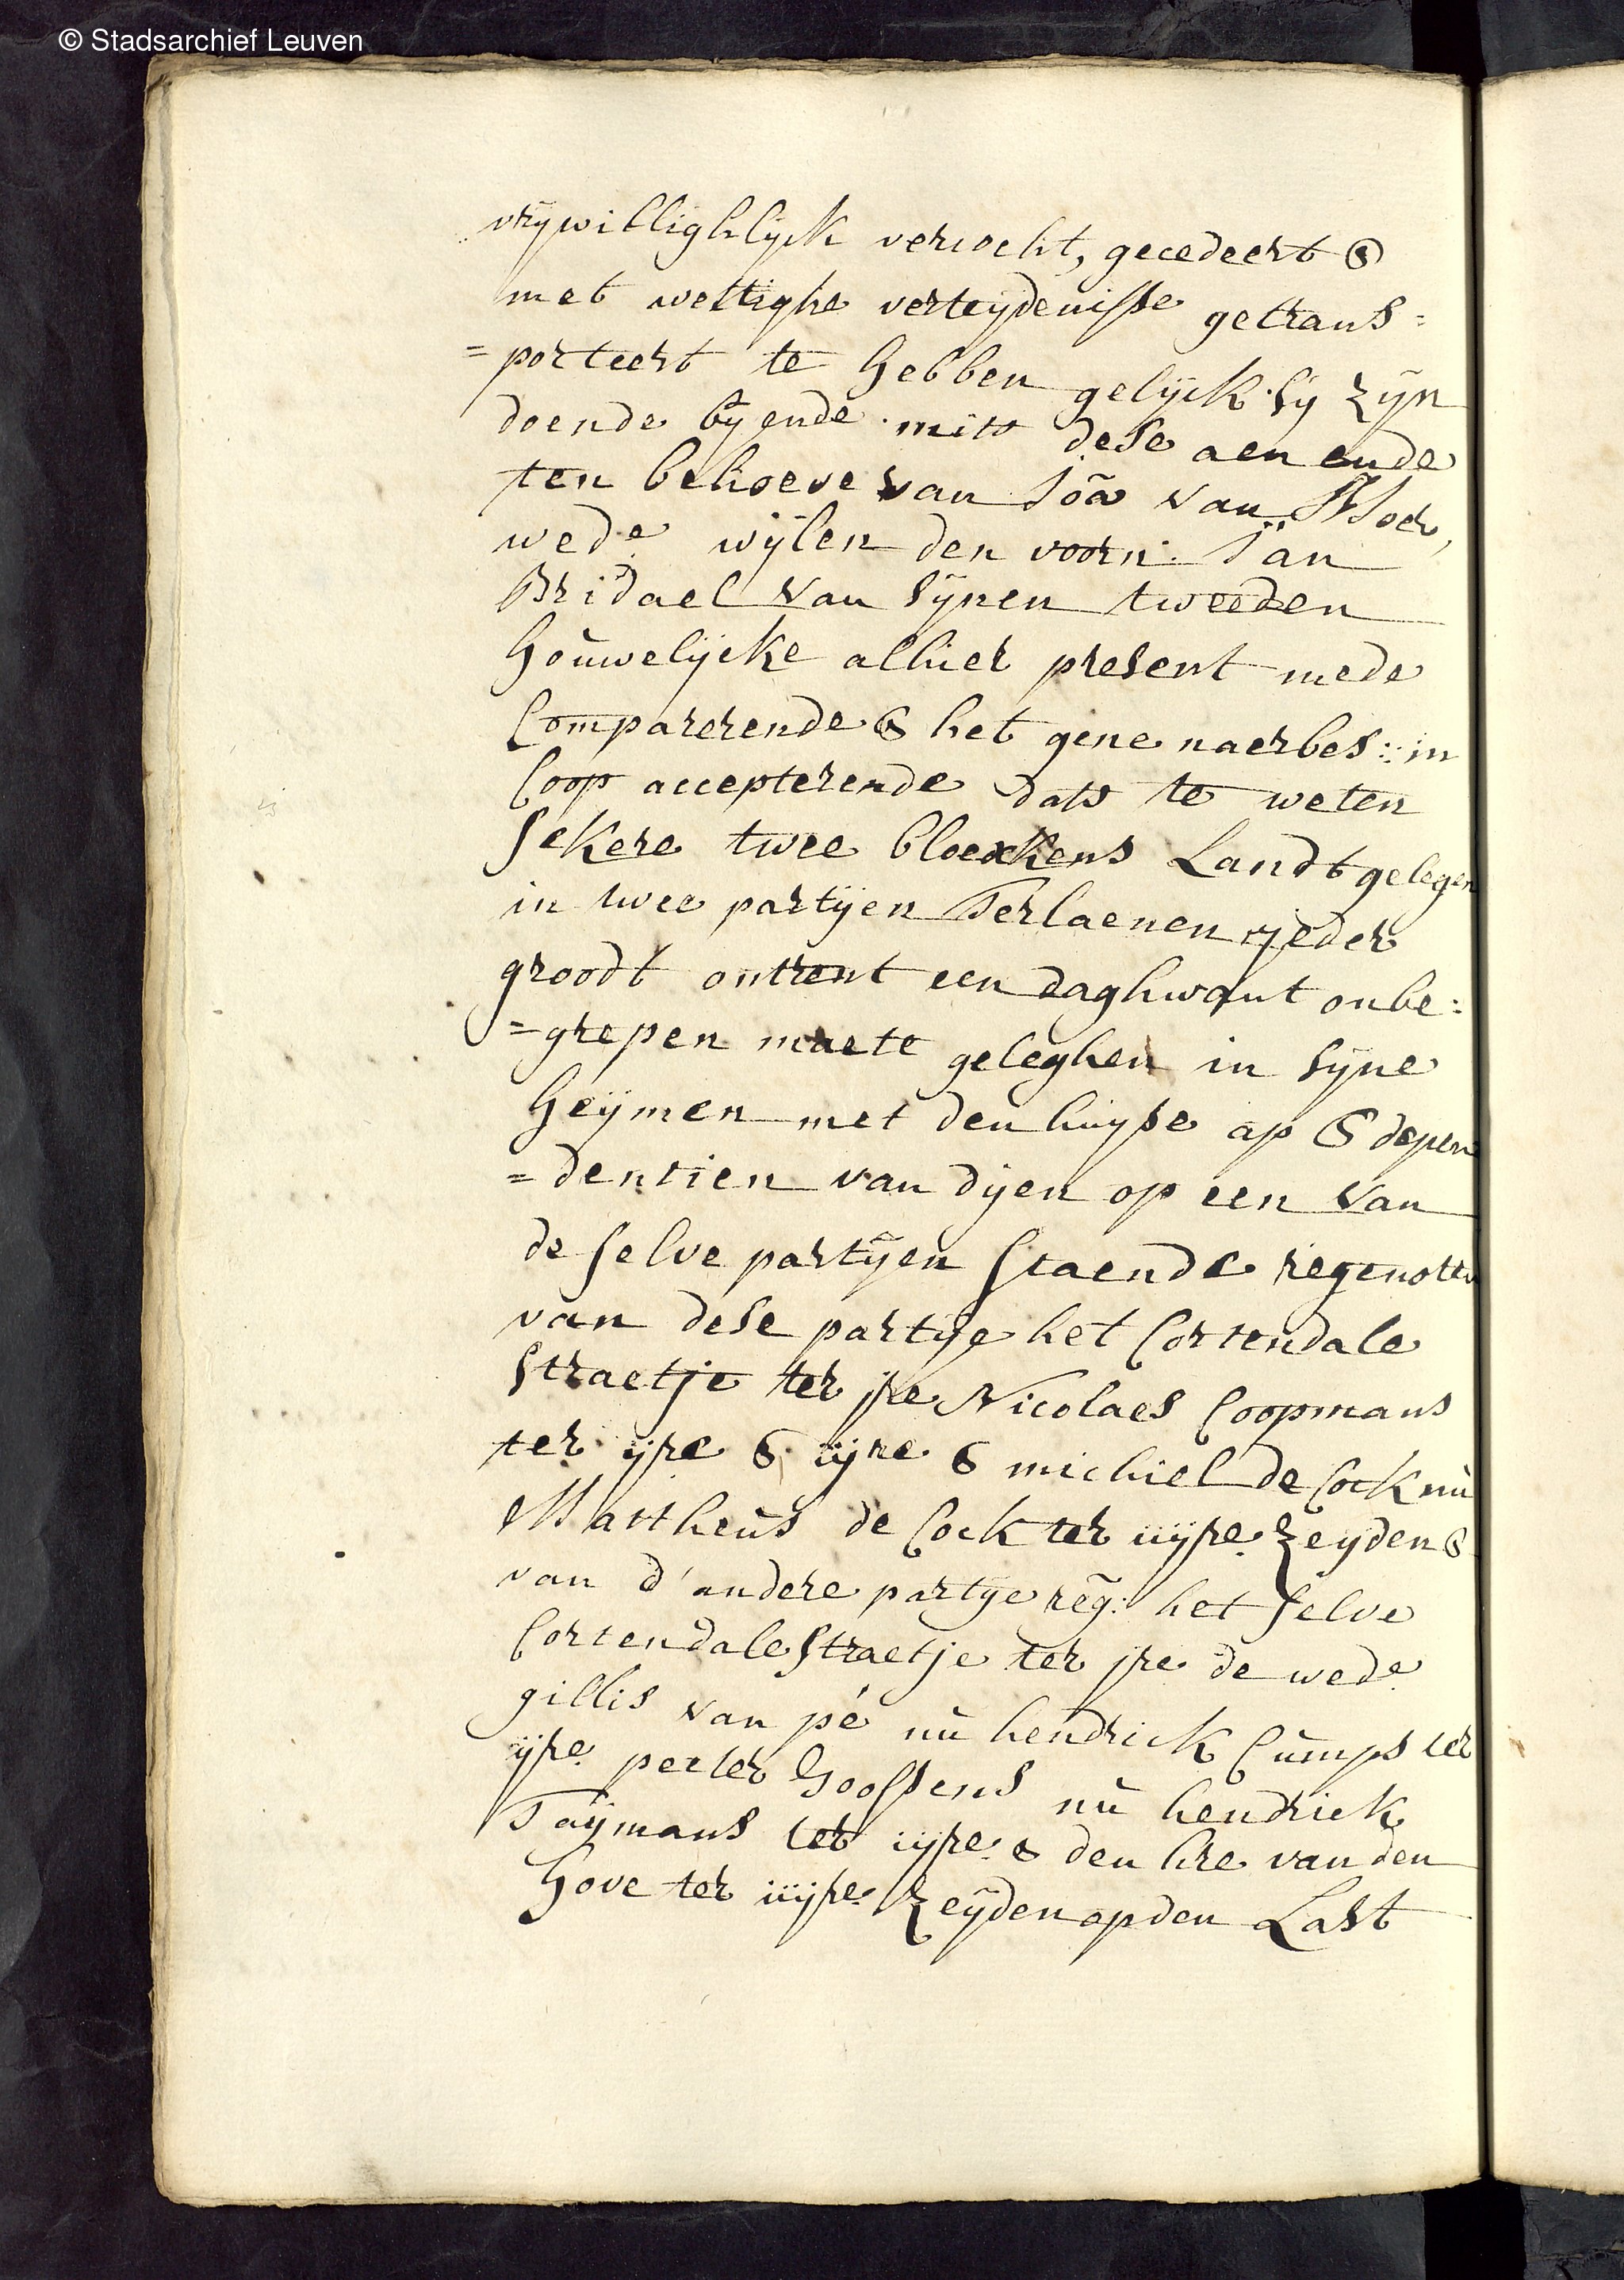 © Stadsarchief Leuven
vrijwillighlijck vercocht, gecedeert &
met wettighe verteijdenisse getrans=
=porteert te hebben gelijck sij zijn
doende bij ende mits dese aen ende
ten behoeve van Joã van Moer,
wede. wijlen den voorn. Jan
Bridael van sijnen tweeden
houwelijcke alhier present mede
Comparerende & het gene naerbes: in
Coop accepterende dats te weten
sekere twee bloexkens Landt gelegen
in twee partijen Terlaenen ijeder
groodt ontrent een daghwant onbe=
=grepen maete geleghen in sijne
heijmen met den huijse op & depen
=dentien van dijen op een van
de selve partijen staende regenotten
van dese partije het Cortendale
straetje ter jre Nicolaes Coopmans
ter ijre & iijre & michiel de Cock nu
Mattheus de Cock ter iiijre. zeijden &
van d'andere partije reg: het selve
Cortendale straetje ter jre de wede.
gillis van pé nu hendrick Cumps ter
ijre. peeter Goossens nu hendrick
Taijmans ter iijre. & den hre van den
hove ter iiijre. zeijden op den Last